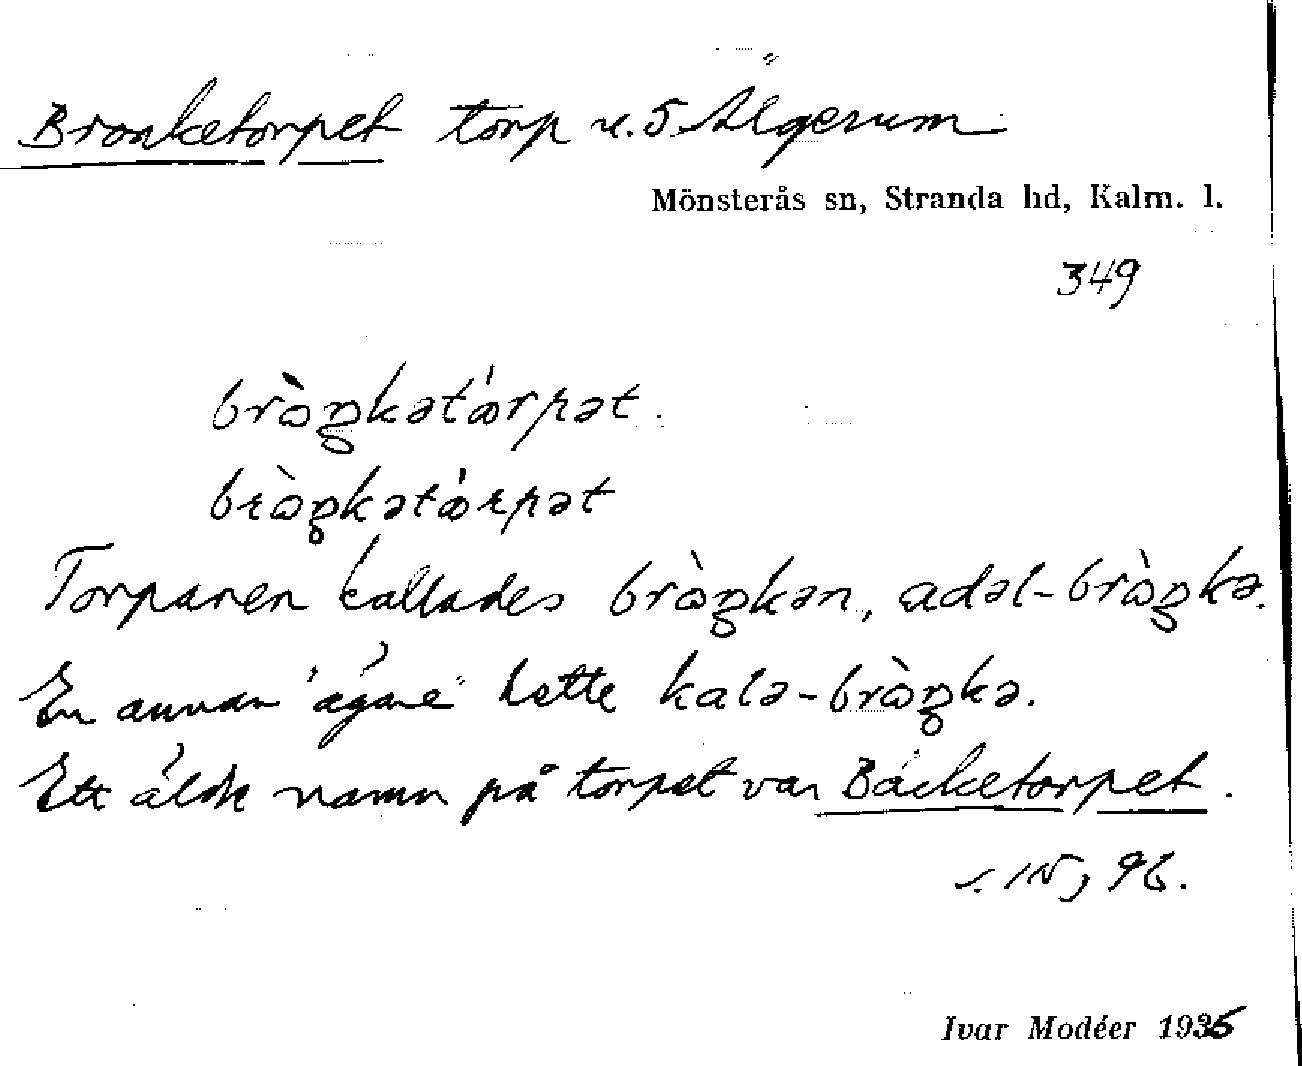 Bronketorpet torp u. S. Älgerum
Mönsterås sn, Stranda hd, Kalm. l.
349
brὼŋkətǿrpət.
brὼŋkətǿrpət
Torparen kallades brὼŋkən, adəl-brὼŋkə.
En annan "ägare" hette kalə-brὼŋkə.
Ett äldre namn på torpet var Bäcketorpet.
96.
Ivar Modéer 1935